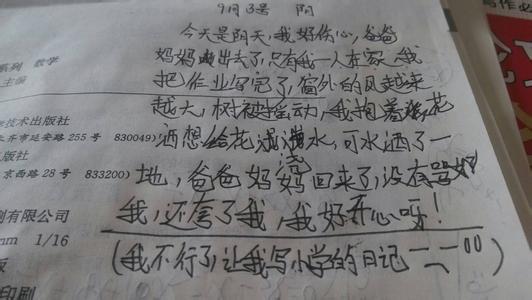 9月3号 阴
今天是阴天,我好伤心,爸爸
妈妈出去了,只有我一人在家,我
系列 数学
主编
把作业写完了,窗外的风越来
越大,树被摇动,我抱着花
技术出版社
洒想给花浇水,可水洒了一
市延安路 255 号 830049)
版社
地,爸爸妈妈回来了,没有骂
京西路 28 号 833200)
我,还夸了我,我好开心呀!
刷有限公司
mm 1/16
(我不行了,让我写小学的日记
版
印刷
写作必